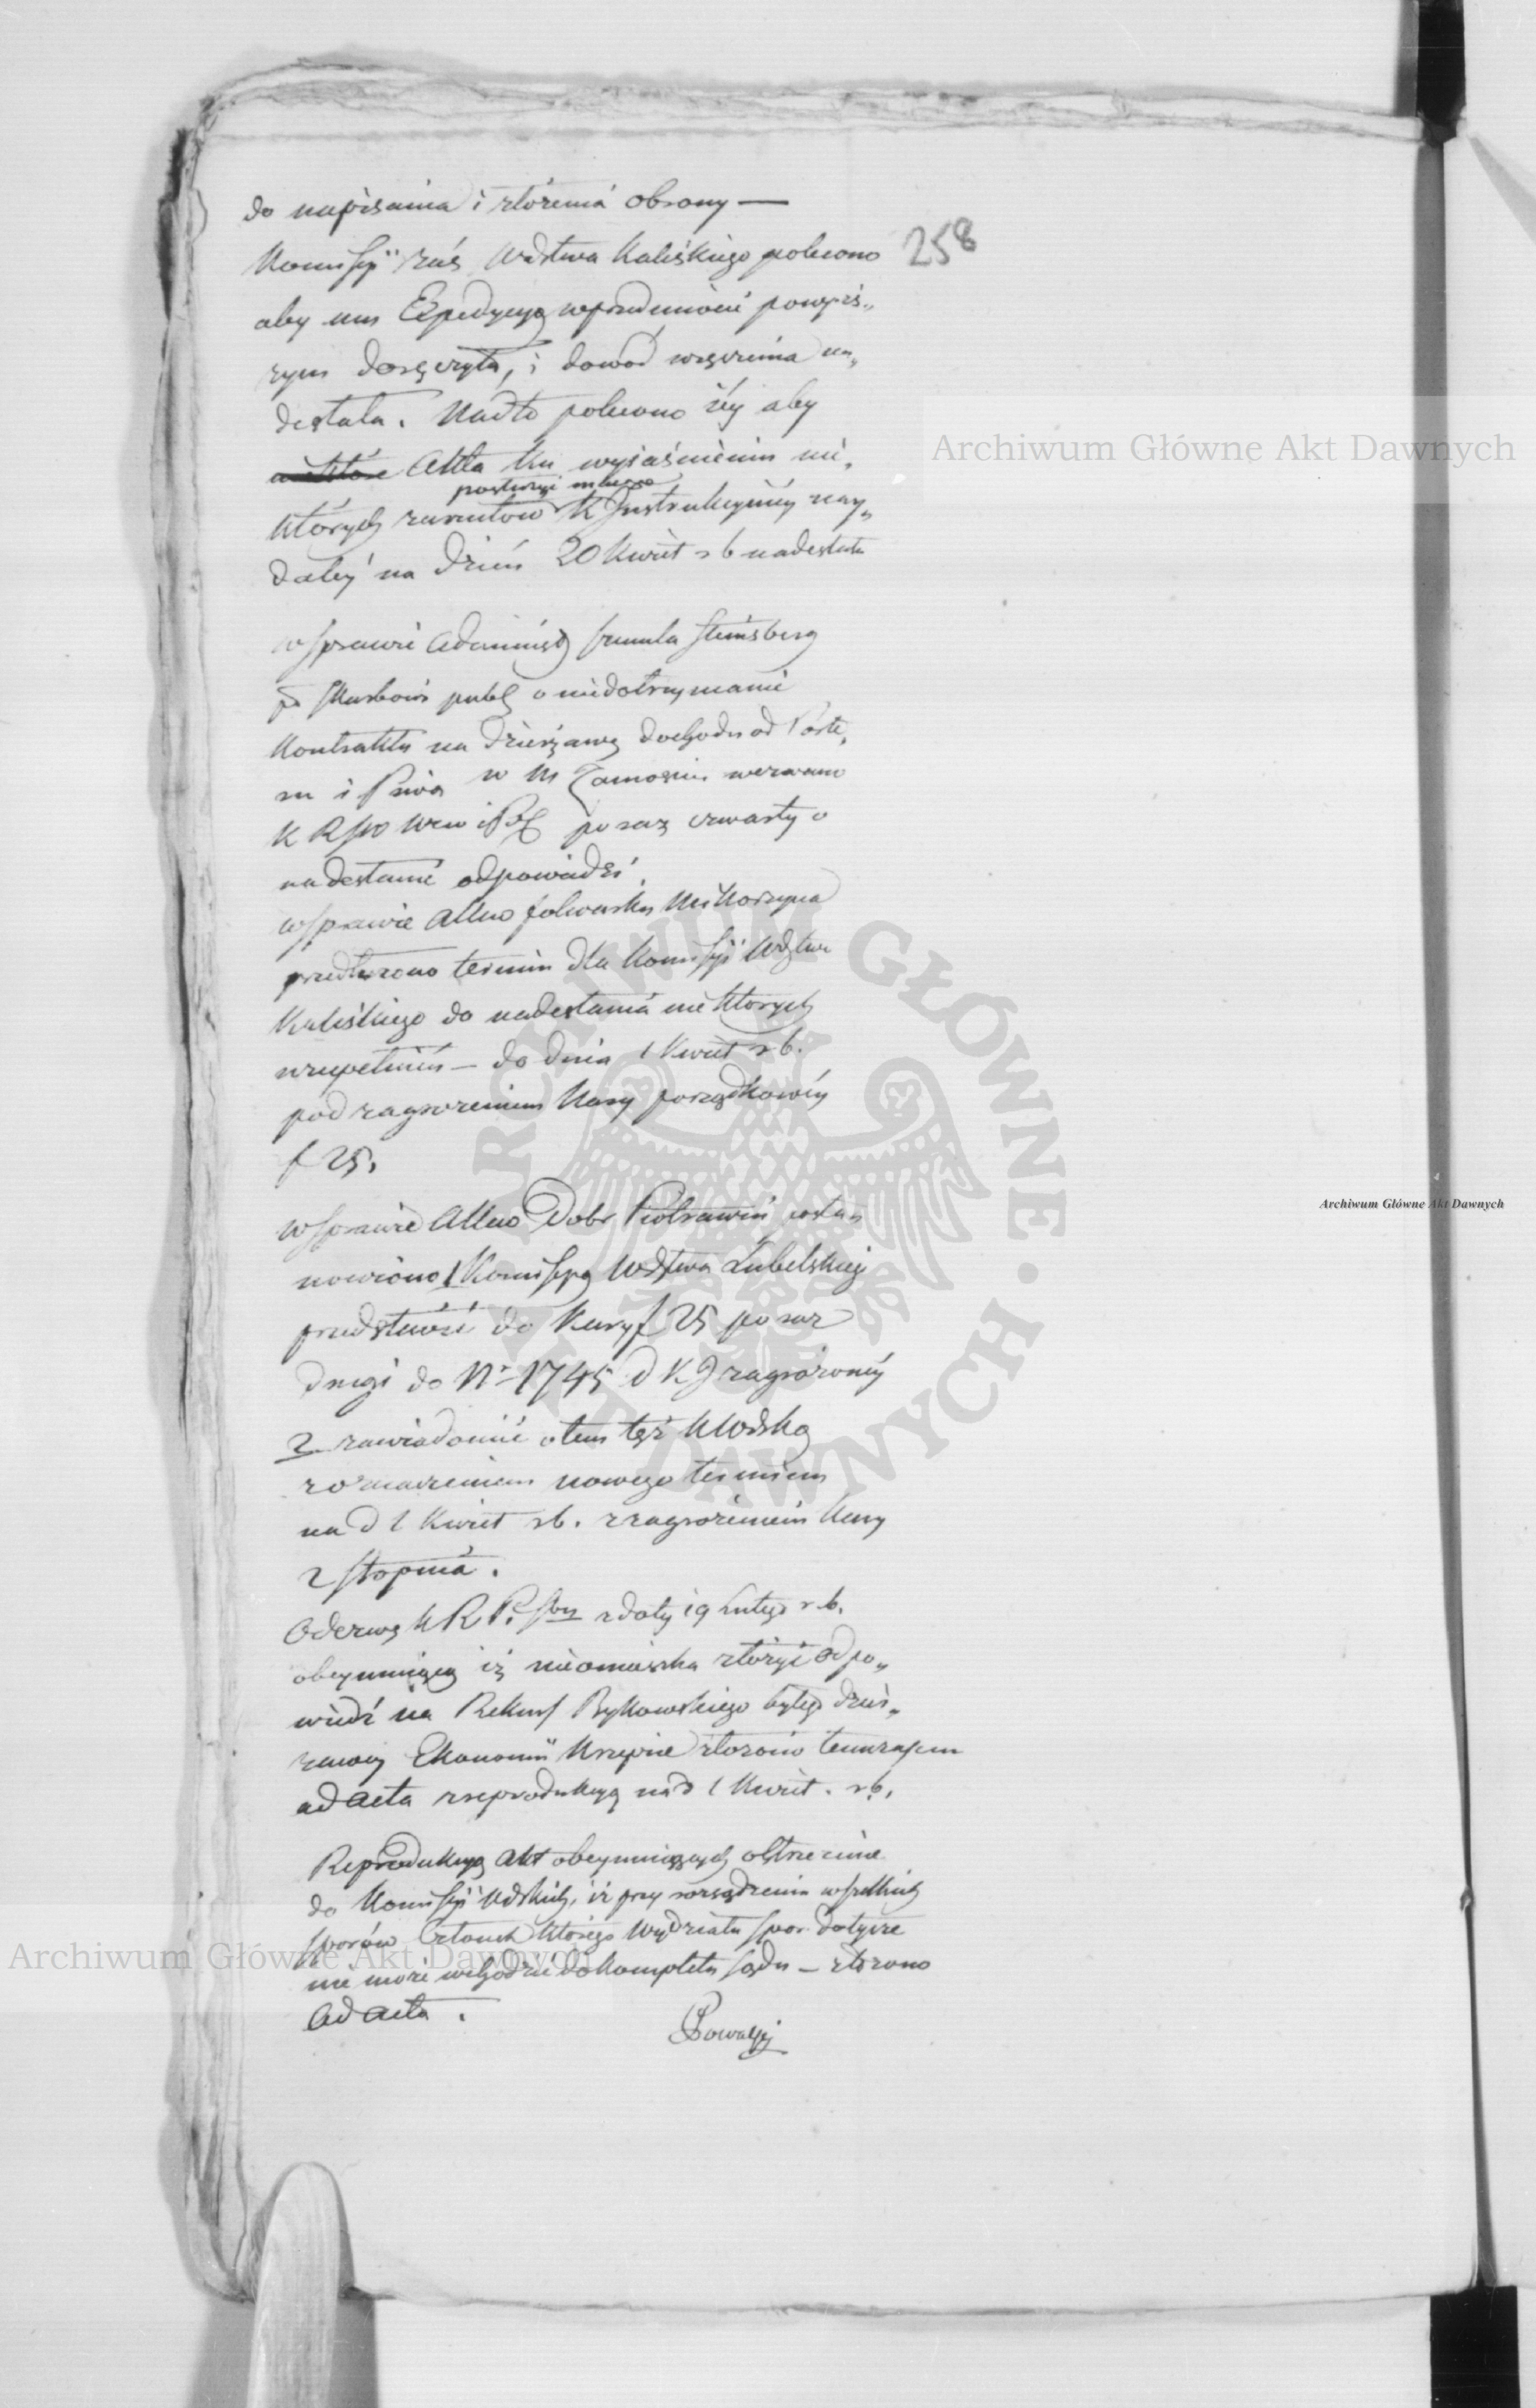 do napisania i złożenia obrony —
258
Kommissyi zaś Wdztwa Kaliskiego polecono
aby mu Expedycyą w przedmiocie powyż„
szym doręczyła, i dowód wręczenia na„
desłała. Nadto polecono iéy aby
Akta ku wyjaśnieniu nie„
posłużyć mogące
których zarzutów K Jnstrukcyiney nay„
daléy na dzień 20 Kwiet r b nadesłała
w sprawie Steinsberg
Skarbowi publ o niedotrzymanie
Kontraktu na dzierżawę dochodu od Porte„
ru i Piwa w M Zamościu wezwano
K R po raz czwarty o
nadesłanie odpowiedzi.
w sprawie folwarku Mikorzyna
przedłużono termin dla Kommissyi Wdztwa
Kaliskiego do nadesłania niektórych
uzupełnień — do dnia 1 Kwiet r b.
pod zagrożeniem Kary porządkowéy
f 25.
w sprawie Dobr Piotrawin postan
nowiono 1 Kommissyą Wdztwa Lubelskiego
przedstawić do Kary f 25 po raz
drugi do Nr 1745 d K J zagrożonéy
2 zawiadomić o tem też K Wdzką
z oznaczeniem nowego terminu
na d 1 Kwiet r b. z zagrożeniem Kary
2 stopnia.
Odezwę K R P. z daty 19 Lutego r. b.
obeymuiącą iż nieomieszka złożyć odpo„
wiedź na Rekurs Bykowskiego byłego dzier„
żawcy Ekonomii Krzepice złożono tymczasem
ad acta z reprodukcyą na d 1 Kwiet. r. b.
Reprodukcyą Akt obeymuiących ostrzeżenie
do Kommissyi Wdzkich, iż przy rozsądzeniu wszelkich
sporów Członek którego Wydziału spor dotycze
nie może wchodzić do kompletu sądu — złożono
ad acta.
Archiwum Główne Akt Dawnych
Archiwum Główne Akt Dawnych
Archiwum Główne Akt Dawnych
ARCHIWUM GŁÓWNE • AKT DAWNYCH •